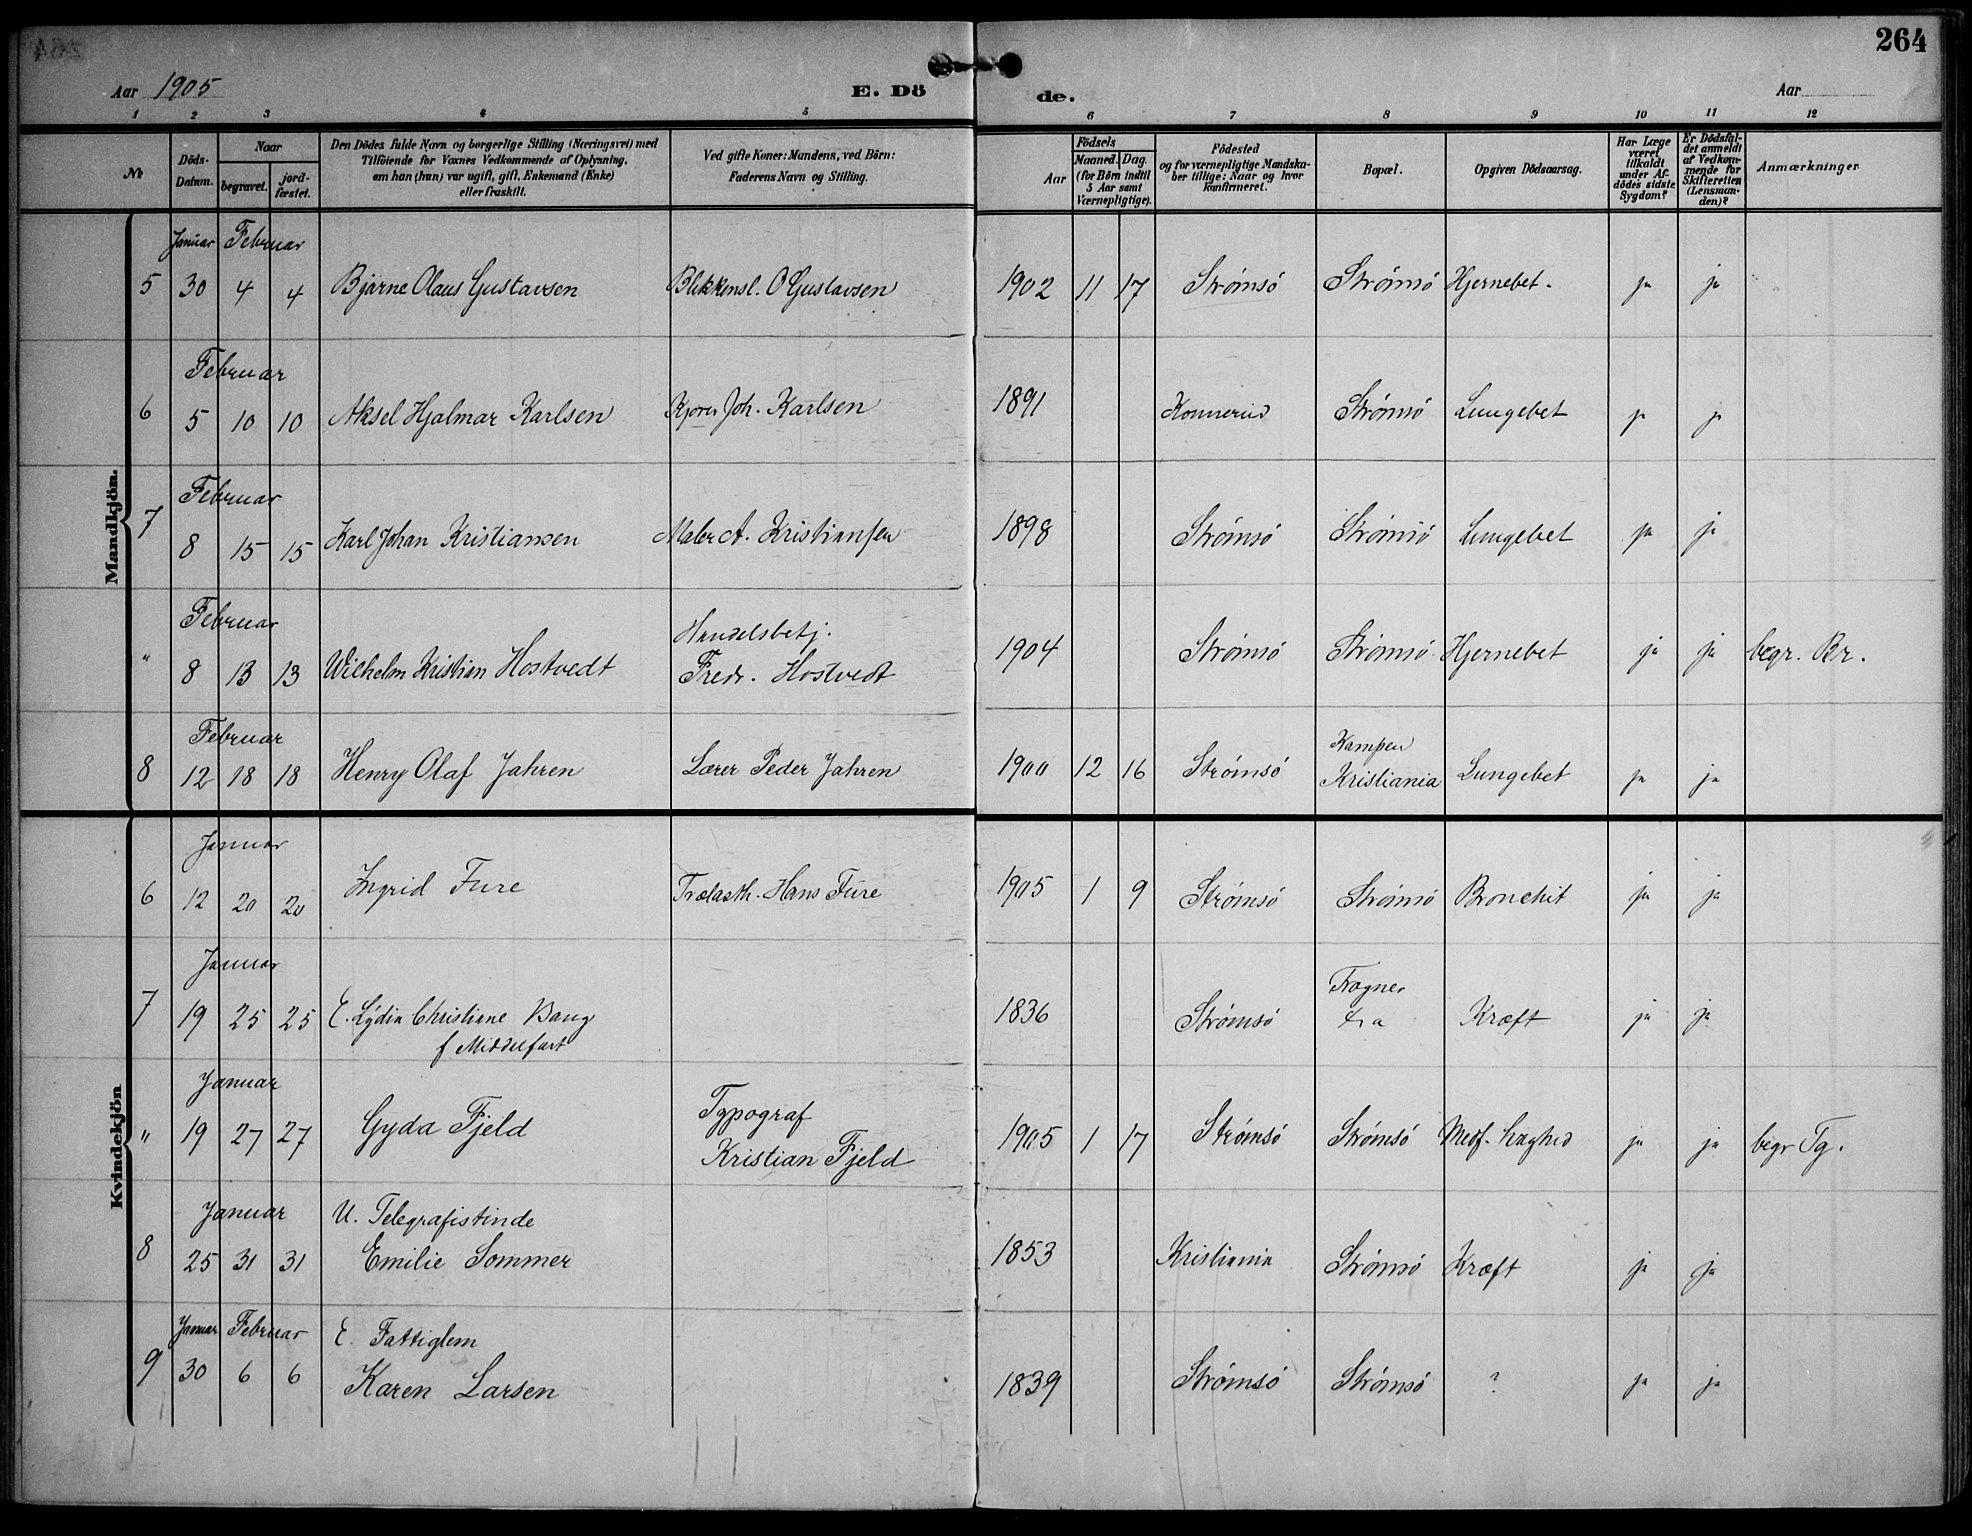 264
Aar 1905
E. Dö
de.
Aar
1 2 3 4 5 6 7 8 9 10 11 12
№
Döds-Datum.
Naar
begravet.
jord-fæstet.
Den Dödes fulde Navn og borgerlige Stilling (Næringsvei) med
Tilföiende for Voxnes Vedkommende af Oplysning,
om han (hun) var ugift, gift, Enkemand (Enke)
eller fraskilt.
Ved gifte Koner: Mandens, ved Börn:
Faderens Navn og Stilling.
Födsels
Aar
Maaned. Dag.
(for Börn indtil
5 Aar samt
Værnepligtige).
Födested
og for værnepligtige Mandska-
ber tillige: Naar og hvor
konfirmeret.
Bopæl.
Opgiven Dödsaarsag.
Har Læge
været
tilkaldt
under Af-
dödes sidste
Sygdom?
Er Dödsfal-
det anmeldt
af Vedkom-
mende for
Skifteretten
(Lensman-
den)?
Anmærkninger
Mandkjön.
Januar Februar
5 30 4 4 Bjarne Olaus Gustavsen Blikkensl. O Gustavsen 1902 11 17 Strømsö Strømsö Hjernebet. ja ja
Februar
6 5 10 10 Aksel Hjalmar Karlsen Kjører Joh. Karlsen 1891 Konnerud Strømsö Lungebet ja ja
Februar
7 8 15 15 Karl Johan Kristiansen Maler A. Kristiansen 1898 Strømsö Strømsö Lungebet ja ja
Februar
Handelsbetj.
" 8 13 13 Wilhelm Kristian Hostvedt Fredr. Hostvedt 1904 Strømsö Strømsö Hjernebet ja ja begr. Br.
Februar
Kampen
8 12 18 18 Henry Olaf Jahren Lærer Peder Jahren 1900 12 16 Strømsö Kristiania Lungebet ja ja
Kvindekjön
Januar
6 12 20 20 Ingrid Fure Trælasth. Hans Fure 1905 1 9 Strømsö Strømsö Bronchit ja ja
Januar
Frogner
7 19 25 25 E. Lydia Christiane Bang 1836 Strømsö Kra Kræft ja ja
f Middelfart
Januar
Typograf
" 19 27 27 Gyda Fjeld Kristian Fjeld 1905 1 17 Strømsö Strømsö Medf. Svaghed ja ja begr Tg.
Januar U. Telegrafistinde
8 25 31 31 Emilie Sommer 1853 Kristiania Strømsö Kræft ja ja
Januar Februar E. Fattiglem
9 30 6 6 Karen Larsen 1839 Strømsö Strømsö ? ja ja